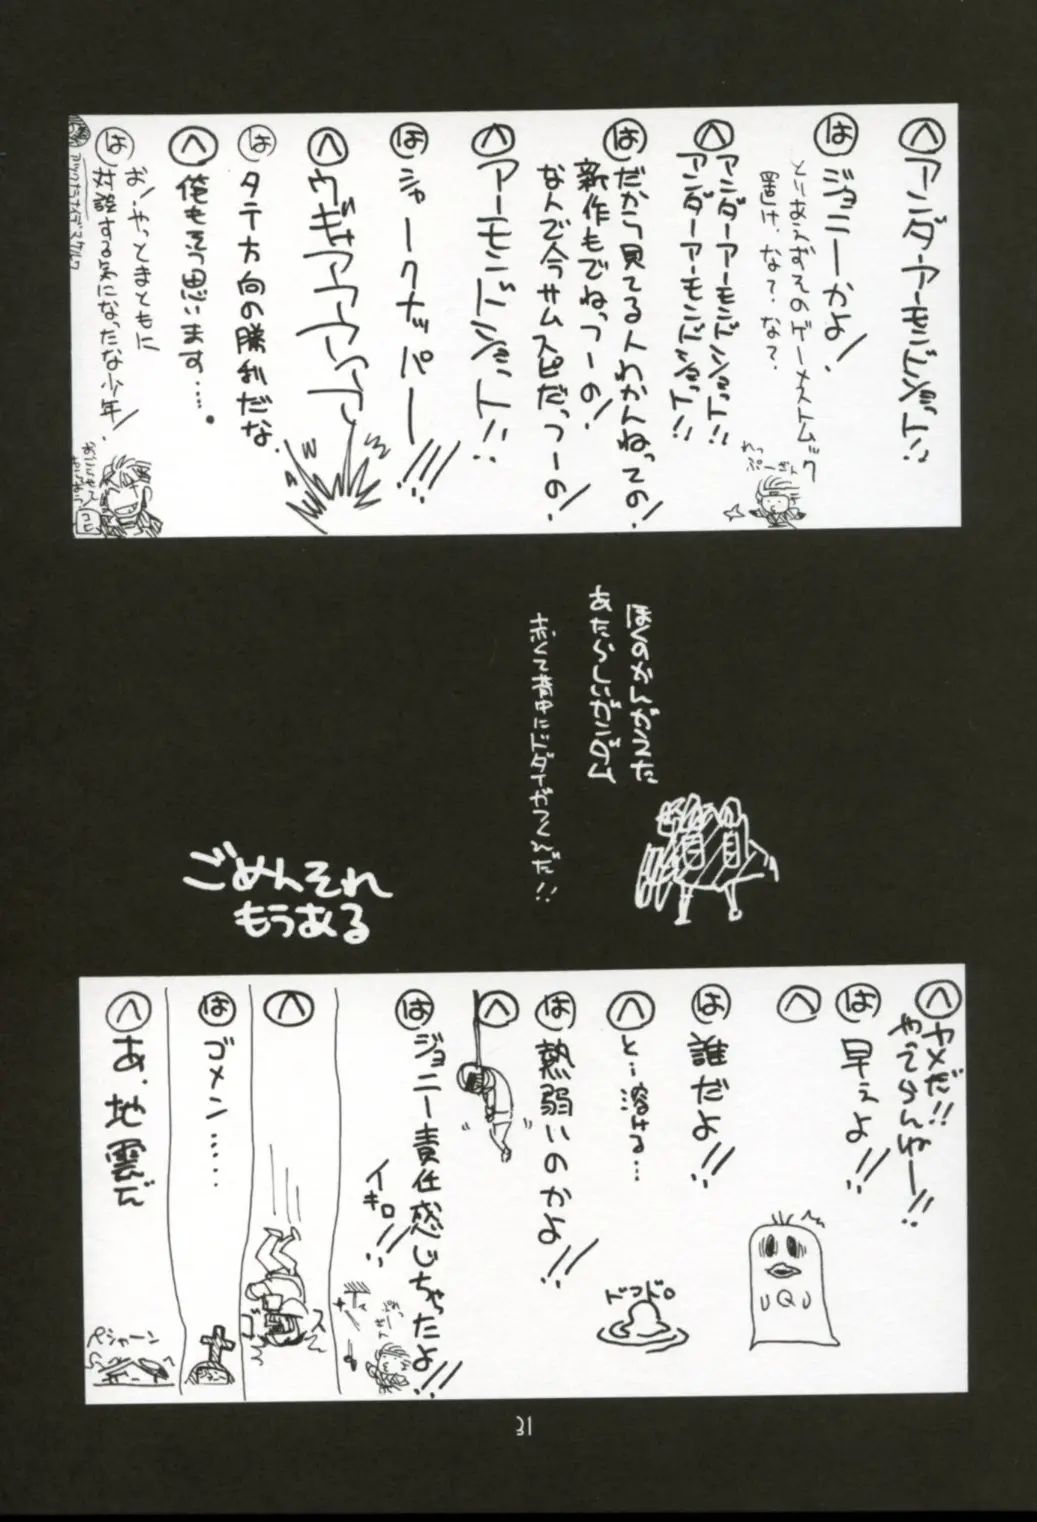 へ アンダーアーモンドショット!!
は ジョニーかよ!
とりあえずそのゲーメストムック
置け、な?な?
へ アンダーアーモンドショット!!
アンダーアーモンドショット!!
は だから見てる人わかんねっての!
新作もでねっつーの!
なんで今サムスピだっつーの!
へ アーモンドショット!!
は シャークナッパー!!!
へ ウギャアアアアア
は タテ方向の勝利だな
へ 俺もそう思います….
は お!やっとまともに
対談する気になったな少年!
ぼくのかんがえた
あたらしいガンダム
赤くて背中にドダイがつくんだ!!
ごめんそれ
もうある
へ ヤメだ!!
やってらんねー!!
は 早えよ!!
へ
は 誰だよ!!
へ と…溶ける…
ドロドロ
は 熱弱いのかよ!!
へ
は ジョニー責任感じちゃったよ!!
イキロ!!
へ
は ゴメン……
へ あ、地震だ
ペシャーン
31